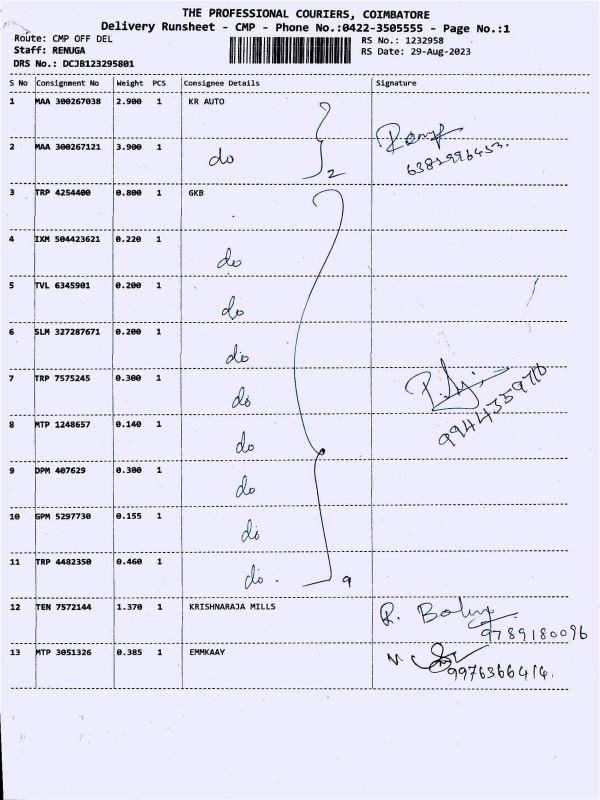 THE PROFESSIONAL COURIERS, COIMBATORE
Delivery Runsheet - CMP - Phone No.:0422-3505555 - Page No.:1
Route: CMP OFF DEL
RS No.: 1232958
Staff: RENUGA
RS Date: 29-Aug-2023
DRS No.: DCJB123295801
S No Consignment No Weight PCS Consignee Details Signature
1 MAA 300267038 2.900 1 KR AUTO
2 MAA 300267121 3.900 1 do 2
3 TRP 4254400 0.800 1 GKB
4 IXM 504423621 0.220 1 do
5 TVL 6345901 0.200 1 do
6 SLM 327287671 0.200 1 do
7 TRP 7575245 0.300 1 do
8 MTP 1248657 0.140 1 do
9 DPM 407629 0.300 1 do
10 GPM 5297730 0.155 1 do
11 TRP 4482350 0.460 1 do. 9
12 TEN 7572144 1.370 1 KRISHNARAJA MILLS
9789180096
13 MTP 3051326 0.385 1 EMMKAAY
9976366414.